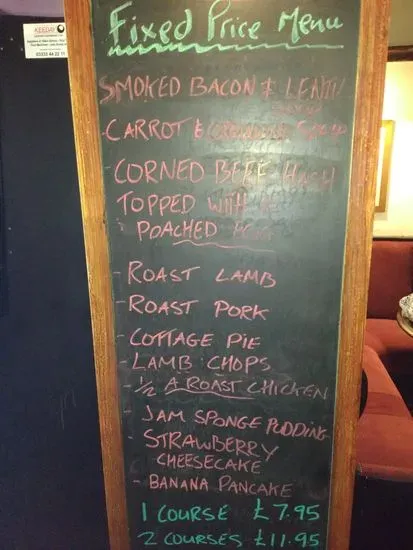 KEEDAY
03333 44 22 11
Fixed Price Menu
SMOKED BACON & LENTIL
SOUP
- CARROT & CORIANDER SOUP
- CORNED BEEF HASH
TOPPED WITH A
POACHED EGG
- ROAST LAMB
- ROAST PORK
- COTTAGE PIE
- LAMB CHOPS
- ½ A ROAST CHICKEN
- JAM SPONGE PUDDING
- STRAWBERRY
CHEESECAKE
- BANANA PANCAKE
1 COURSE £7.95
2 COURSES £11.95